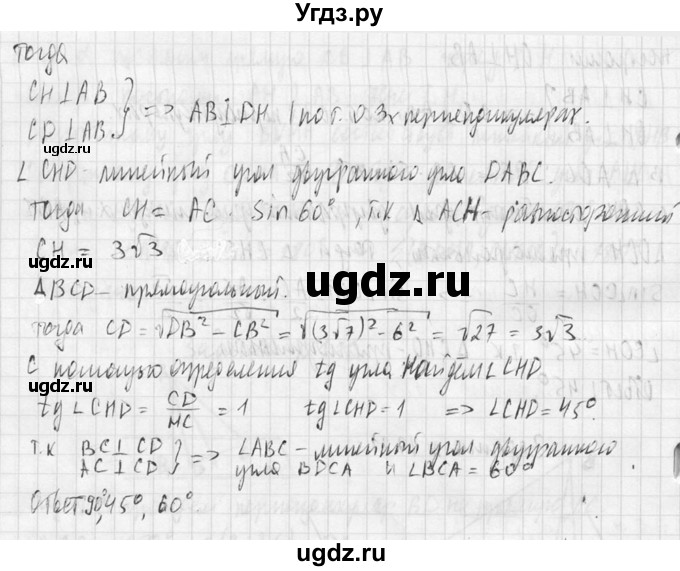 Угдз.ру
Тогда
CH⊥AB
CD⊥AB. } => AB⊥DH (по т. о 3х перпендикулярах.
∠CHD линейный угол двугранного угла DABC.
Тогда CH = AC sin 60°, т.к △ ACH - равносторонний
CH = 3√3
△BCD - прямоугольный.
тогда CD = √DB² - CB² = √(3√7)² - 6² = √27 = 3√3
С помощью определения tg угла Найдём ∠CHD
tg∠CHD = CD/MC = 1 tg∠CHD = 1 => ∠CHD = 45°.
т.к BC⊥CD
AC⊥CD } => ∠ABC - линейный угол двугранного
угла BDCA и ∠BCA = 60°
Ответ: 90°, 45°, 60°
ugdz.ru
ugdz.ru
ugdz.ru
ugdz.ru
ugdz.ru